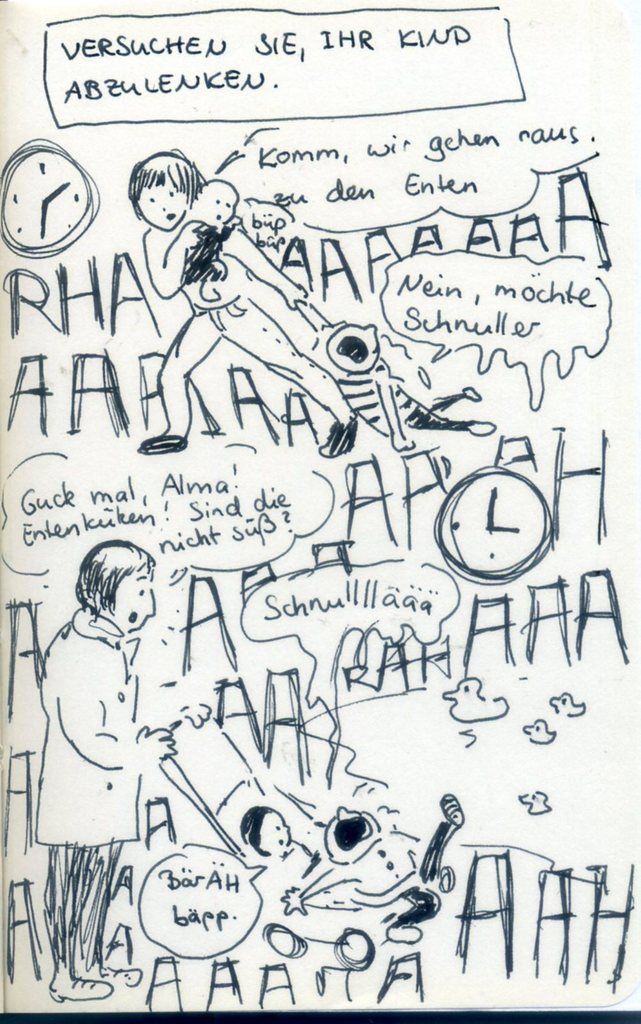 VERSUCHEN SIE, IHR KIND
ABZULENKEN.
Komm, wir gehen raus.
zu den Enten
büp
bäp
RHA
AAAAAAA
Nein, möchte
Schnuller
AAAAAA
Guck mal, Alma!
Entenküken! Sind die
nicht süß?
AAAH
Schnullllääää
A A A A AAA
AA
RAH
BärÄH
bäpp.
A A A A A AAH
A A A A A